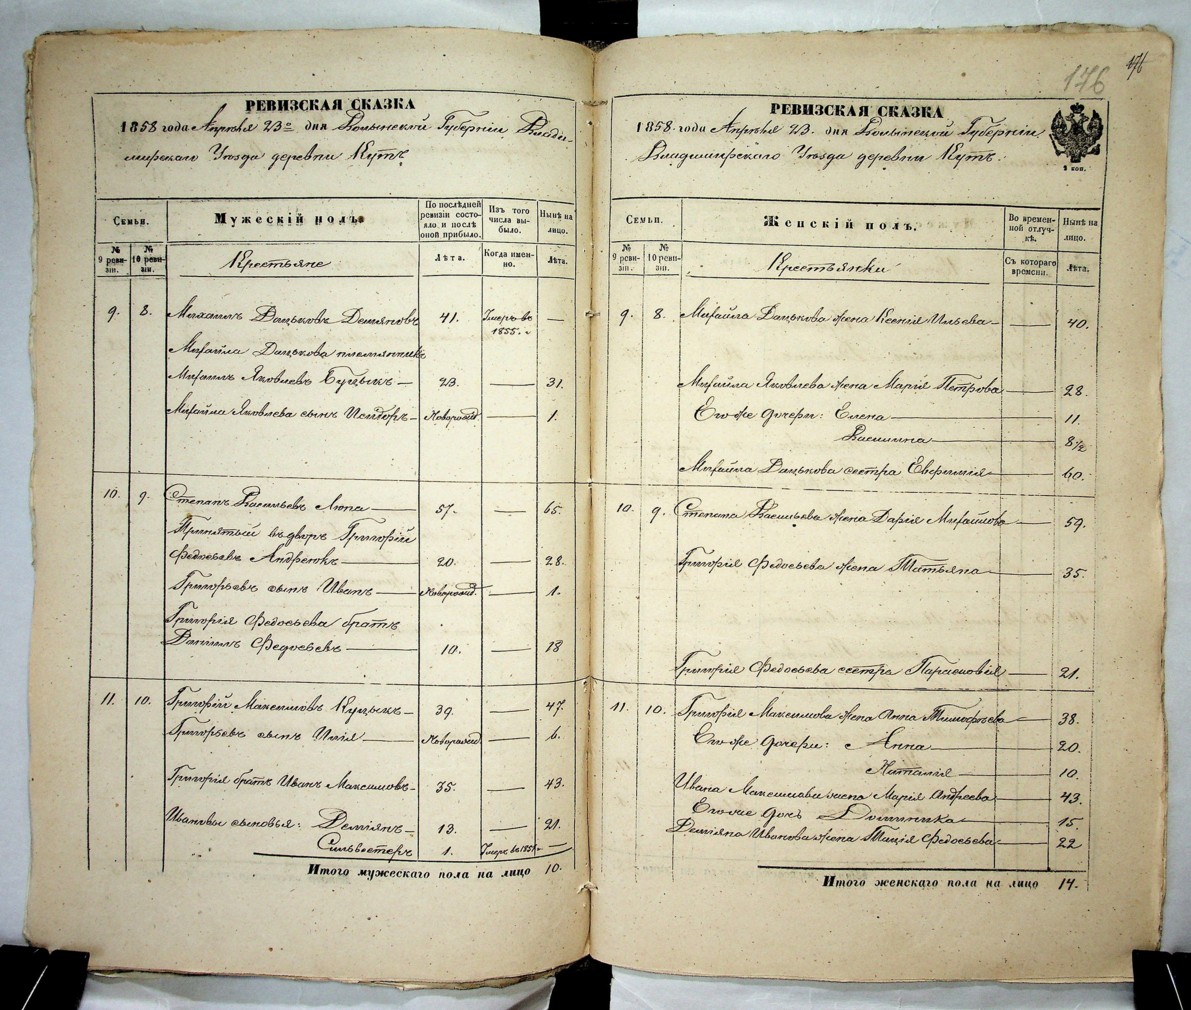 РЕВИЗСКАЯ СКАЗКА
1858 года Апрѣля 23го дня Волынской Губерніи Влади-
мирскаго Уѣзда деревни Кутъ
Семьи.
Мужескій полъ.
По послѣдней ревизіи состояло и послѣ оной прибыло.
Изъ того числа выбыло.
Нынѣ на лицо.
№ 9 ревизіи.
№ 10 ревизіи.
Крестьяне
Лѣта.
Когда именно.
Лѣта.
9. 8. Михаилъ Дацьковъ Демяновъ 41. Умеръ въ 1855. —
Михайла Дацькова племянникъ
Михаилъ Яковлевъ 23. — 31.
Михайла Яковлева сынъ Исидоръ Новорожд — 1.
10. 9. Степанъ Васильевъ Люпа 57. — 65
Принятый въ дворъ Григорій
Федосѣевъ Андреюкъ 20. — 28.
Григорьевъ сынъ Иванъ Новорожд. — 1.
Григорія Федосѣева братъ
Даніилъ Федосѣевъ 10. — 18
11. 10. Григорій Максимовъ Куцыкъ 39. — 47.
Григорьевъ сынъ Илія Новорожд — 6.
Григорія братъ Иванъ Максимовъ 35. — 43.
Ивановы сыновья: Демьянъ 13. — 21.
Сильвестеръ 1. Умеръ въ 1851. —
Итого мужескаго пола на лицо 10.
176
176
РЕВИЗСКАЯ СКАЗКА
1858. года Апрѣля 23. дня Волынской Губерніи,
Владимирскаго Уѣзда деревни Кутъ.
Семьи.
Женскій полъ.
Во временной отлучкѣ.
Нынѣ на лицо.
№ 9 ревизіи.
№ 10 ревизіи.
Крестьянки
Съ котораго времени.
Лѣта.
9. 8. Михайла Дацькова жена Ксенія Ильева — 40.
Михайла Яковлева жена Марія Петрова — 28
Его же дочери: Елена — 11.
Василина — 8½
Михайла Дацькова сестра Евфимія — 60.
10. 9. Степана Васильева жена Дарія Михайлова — 59.
Григорія Федосѣева жена Татьяна — 35.
Григорія Федосѣева сестра Парасковія — 21.
11. 10. Григорія Максимова жена Анна Тимофѣева — 38.
Его же дочери: Анна — 20.
Наталія — 10.
Ивана Максимова жена Марія Андреева — 43.
Его же дочь Доминика — 15.
Деміяна Иванова жена Федосѣева — 22
Итого женскаго пола на лицо 14.